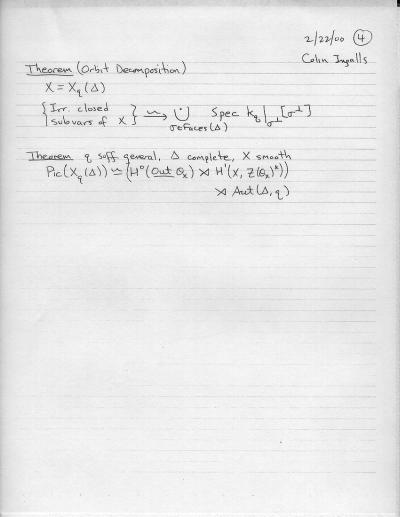 2/22/00 ④
Colin Ingalls
Theorem (Orbit Decomposition)
X = X_q(Δ)
{Irr. closed subvars of X} ⇝ ∪̇_{σ∈Faces(Δ)} Spec k_q|_{σ^⊥}[σ^⊥]
Theorem q suff general, Δ complete, X smooth
Pic(X_q(Δ)) ≃ (H⁰(Out O_X) ⋊ H¹(X, Z(O_X)*))
⋊ Aut(Δ, q)